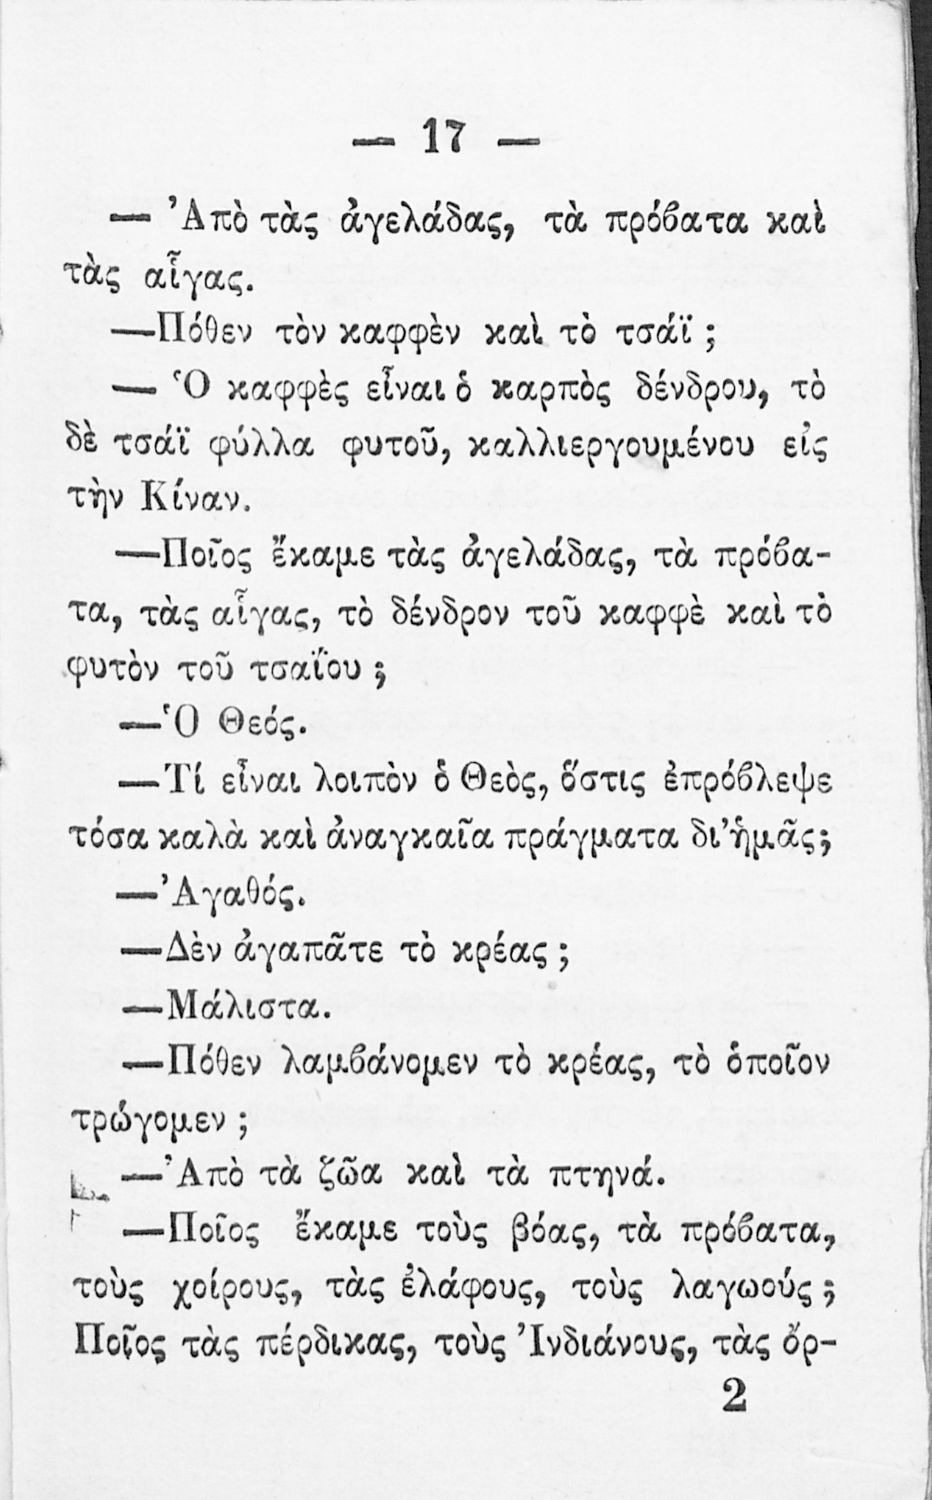 — 17 —
— Ἀπὸ τὰς ἀγελάδας, τὰ πρόϐατα καὶ
τὰς αἶγας.
—Πόθεν τὸν καφφὲν καὶ τὸ τσάϊ ;
— Ὁ καφφὲς εἶναι ὁ καρπὸς δένδρου, τὸ
δὲ τσάϊ φύλλα φυτοῦ, καλλιεργουμένου εἰς
τὴν Κίναν.
—Ποῖος ἔκαμε τὰς ἀγελάδας, τὰ πρόϐα-
τα, τὰς αἶγας, τὸ δένδρον τοῦ καφφὲ καὶ τὸ
φυτὸν τοῦ τσαΐου ;
—Ὁ Θεός.
—Τί εἶναι λοιπὸν ὁ Θεὸς, ὅστις ἐπρόϐλεψε
τόσα καλὰ καὶ ἀναγκαῖα πράγματα δι’ἡμᾶς;
—Ἀγαθός.
—Δὲν ἀγαπᾶτε τὸ κρέας ;
—Μάλιστα.
—Πόθεν λαμϐάνομεν τὸ κρέας, τὸ ὁποῖον
τρώγομεν ;
—Ἀπὸ τὰ ζῶα καὶ τὰ πτηνά.
—Ποῖος ἔκαμε τοὺς βόας, τὰ πρόϐατα,
τοὺς χοίρους, τὰς ἐλάφους, τοὺς λαγωούς ;
Ποῖος τὰς πέρδικας, τοὺς Ἰνδιάνους, τὰς ὄρ-
2